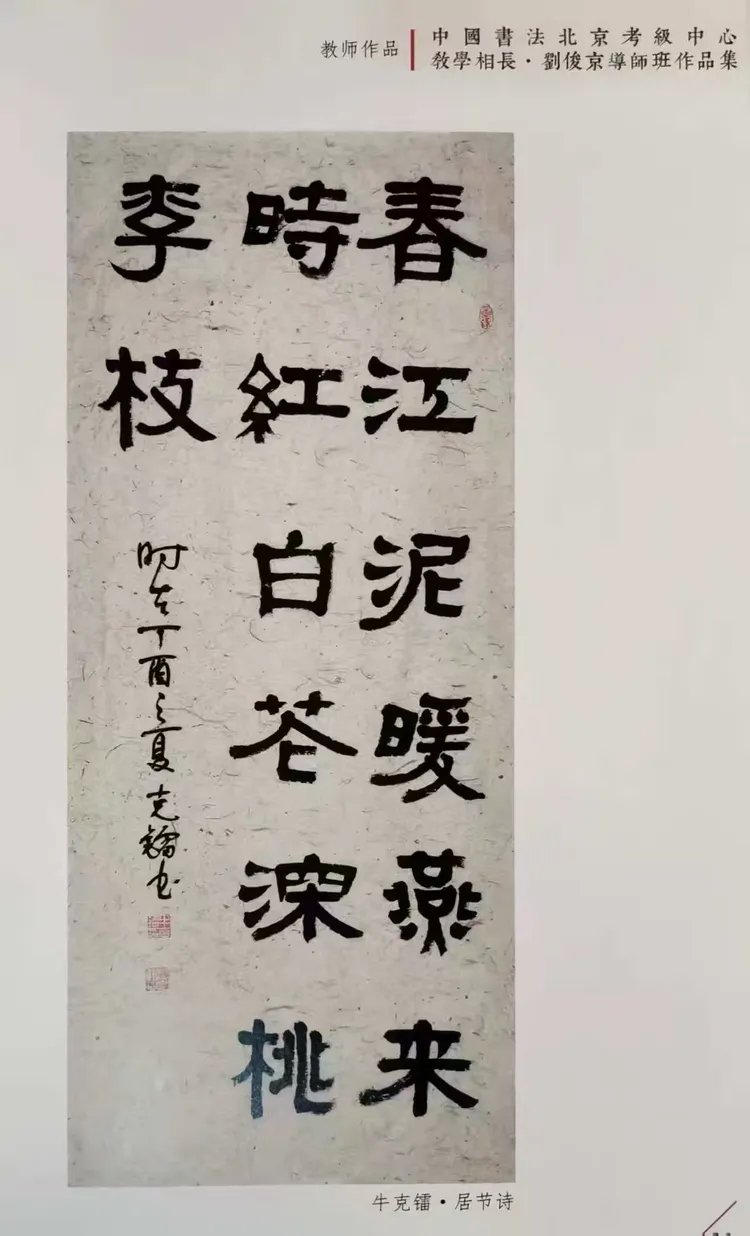 教师作品
中國書法北京考級中心
教學相長·劉俊京導師班作品集
春江泥暖燕来
時紅白花深桃
李枝
时在丁酉之夏克镭书
牛克镭·居节诗